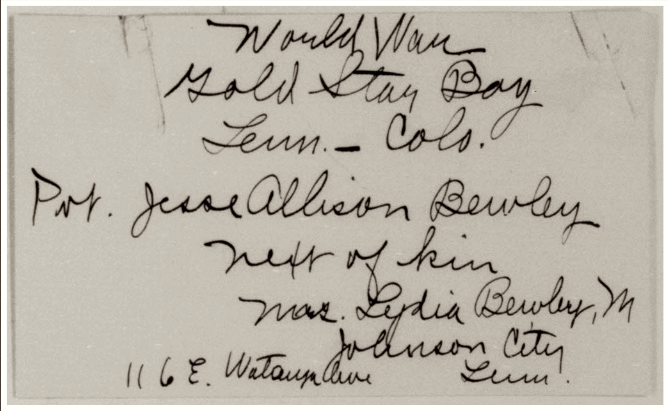 World War
Gold Star Boy
Tenn. – Colo.
Pvt. Jesse Allison Bewley
next of kin
Mrs. Lydia Bewley, M
Johnson City
116 E. Watauga Ave Tenn.